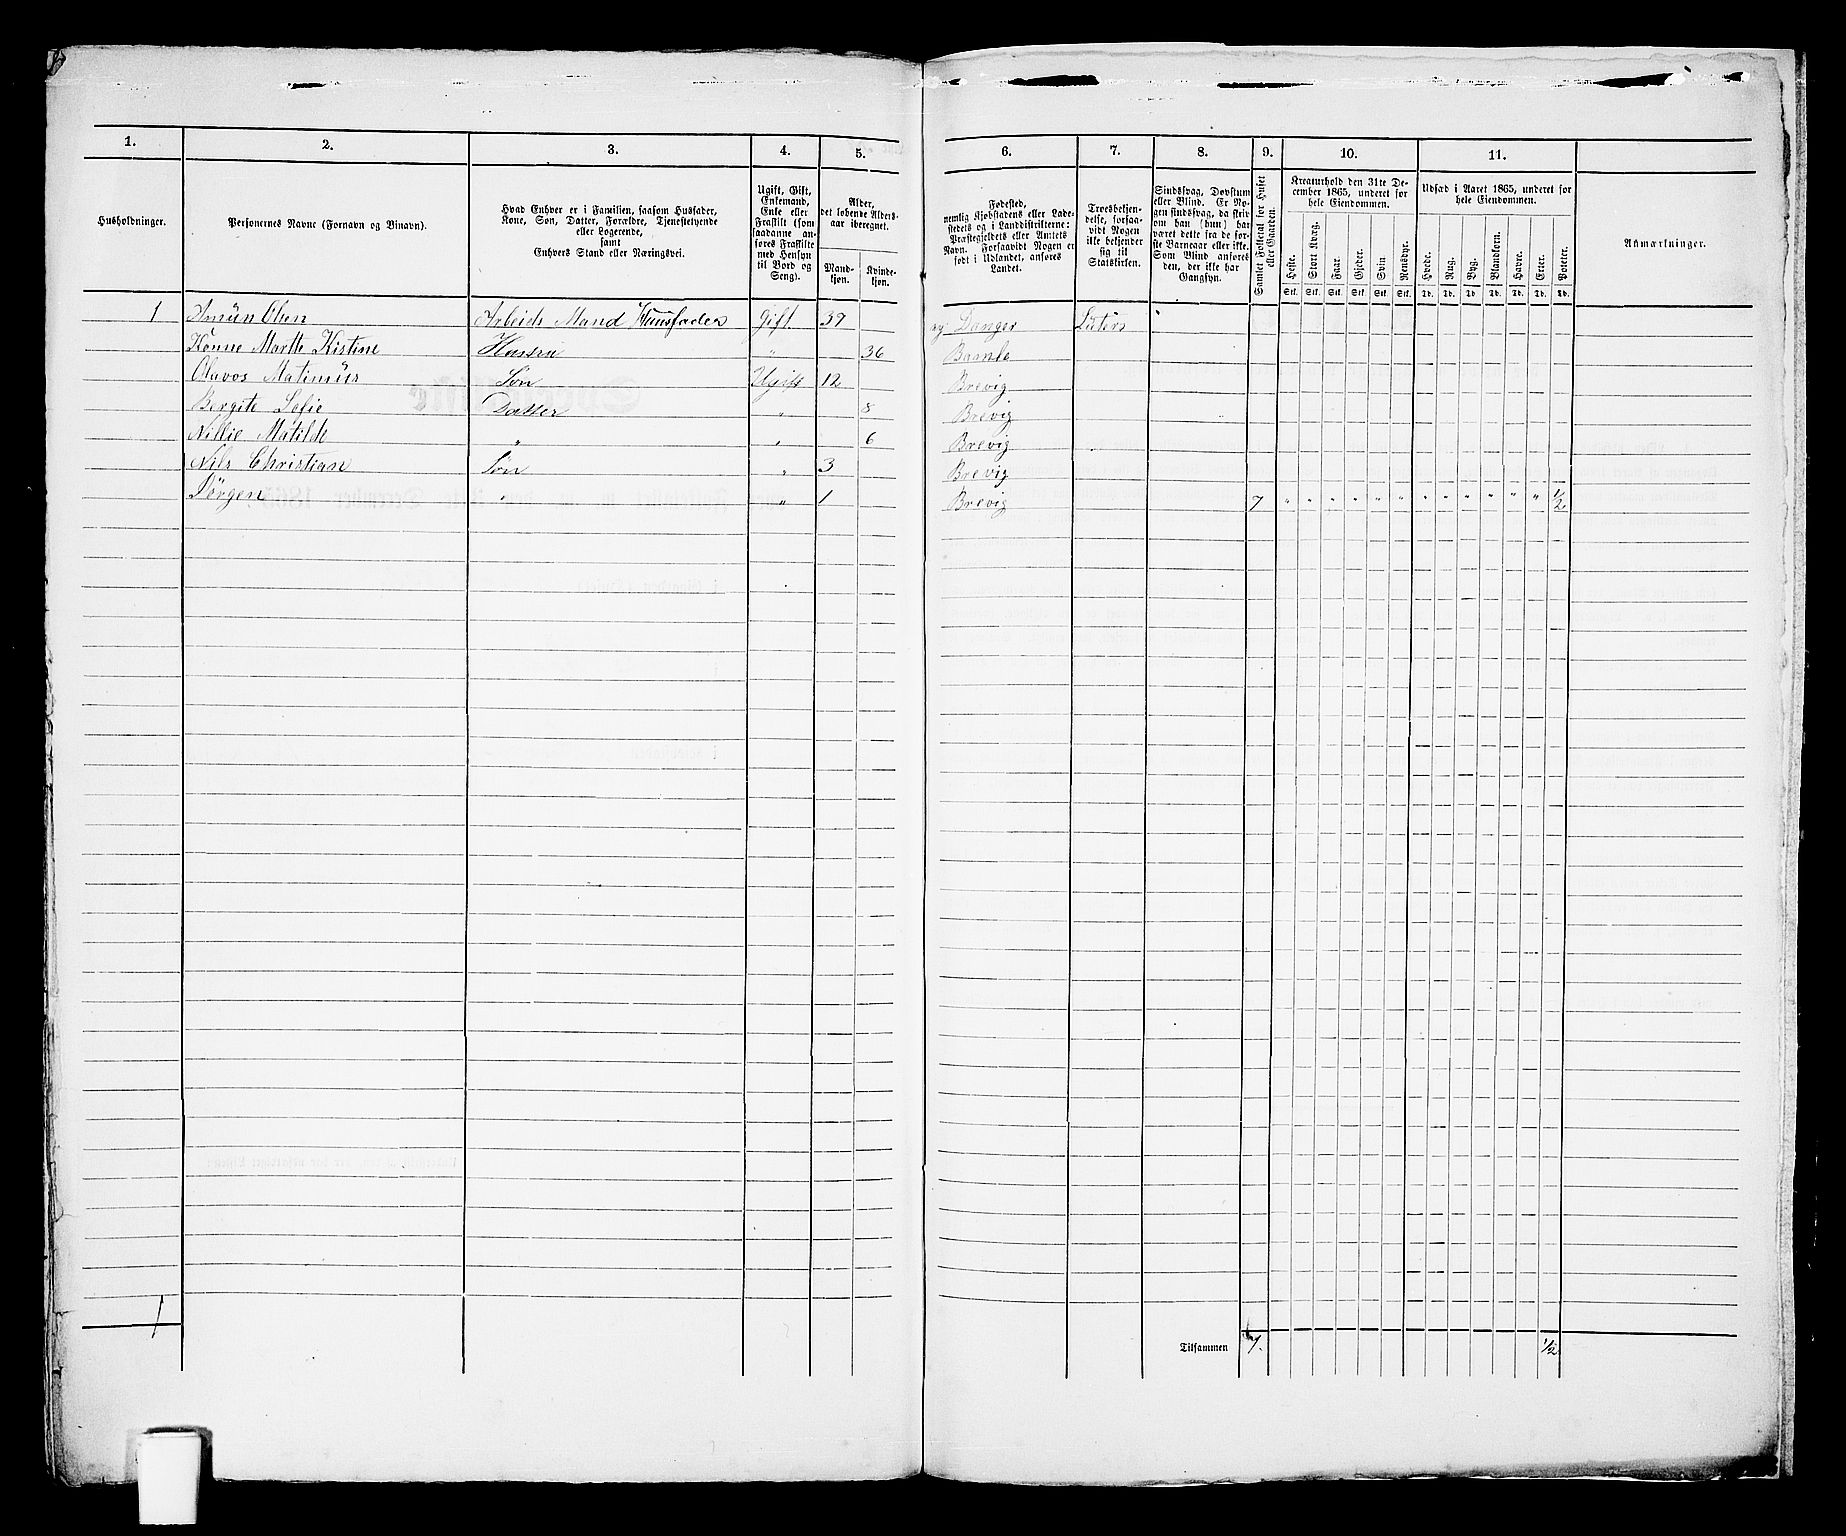 1.
2.
3.
4.
5.
6.
7.
8.
9.
10.
11.
Husholdninger.
Personernes Navne (Fornavn og Binavn).
Hvad Enhver er i Familien, saasom Husfader,
Kone, Søn, Datter, Forældre, Tjenestetyende
eller Logerende,
samt
Enhvers Stand eller Næringsvei.
Ugift, Gift,
Enkemand,
Enke eller
Fraskilt (som
saadanne an-
føres Fraskilte
med Hensyn
til Bord og
Seng).
Alder,
det løbende Alders-
aar iberegnet.
Mand-
kjøn.
Kvinde-
kjøn.
Fødested,
nemlig Kjøbstadens eller Lade-
stedets og i Landdistrikterne:
Præstegjeldets eller Amtets
Navn. Forsaavidt Nogen er
født i Udlandet, anføres
Landet.
Troesbekjen-
delse, forsaa-
vidt Nogen
ikke bekjender
sig til
Statskirken.
Sindssvag, Døvstum
eller Blind. Er No-
gen sindssvag, da skriv
om han (hun) har
været dette fra de før-
ste Barneaar eller ikke.
Som Blind anføres
den, der ikke har
Gangsyn.
Samlet Folketal for Huset
eller Gaarden.
Kreaturhold den 31te De-
cember 1865, underet for
hele Eiendommen.
Heste. Stort Kvæg. Faar. Gjeder. Svin. Rensdyr.
Stk. Stk. Stk. Stk. Stk. Stk.
Udsæd i Aaret 1865, underet for
hele Eiendommen.
Hvede. Rug. Byg. Blandkorn. Havre. Erter. Poteter.
Td. Td. Td. Td. Td. Td. Td.
Anmærkninger.
1 Amün Olsen Arbeids Mand Huusfader Gift. 39 Langer Luters
Konne Marthe Kistine Hustru " 36 Bamle
Olavos Matimüs Søn Ugift 12 Brevig
Bergite Sofie Datter " 8 Brevig
Nillie Matilde " " 6 Brevig
Nils Christian Søn " 3 Brevig
Jørgen " " 1 Brevig 7 " " " " " " " " " " " " 1/2
1
Tilsammen 7. 1/2